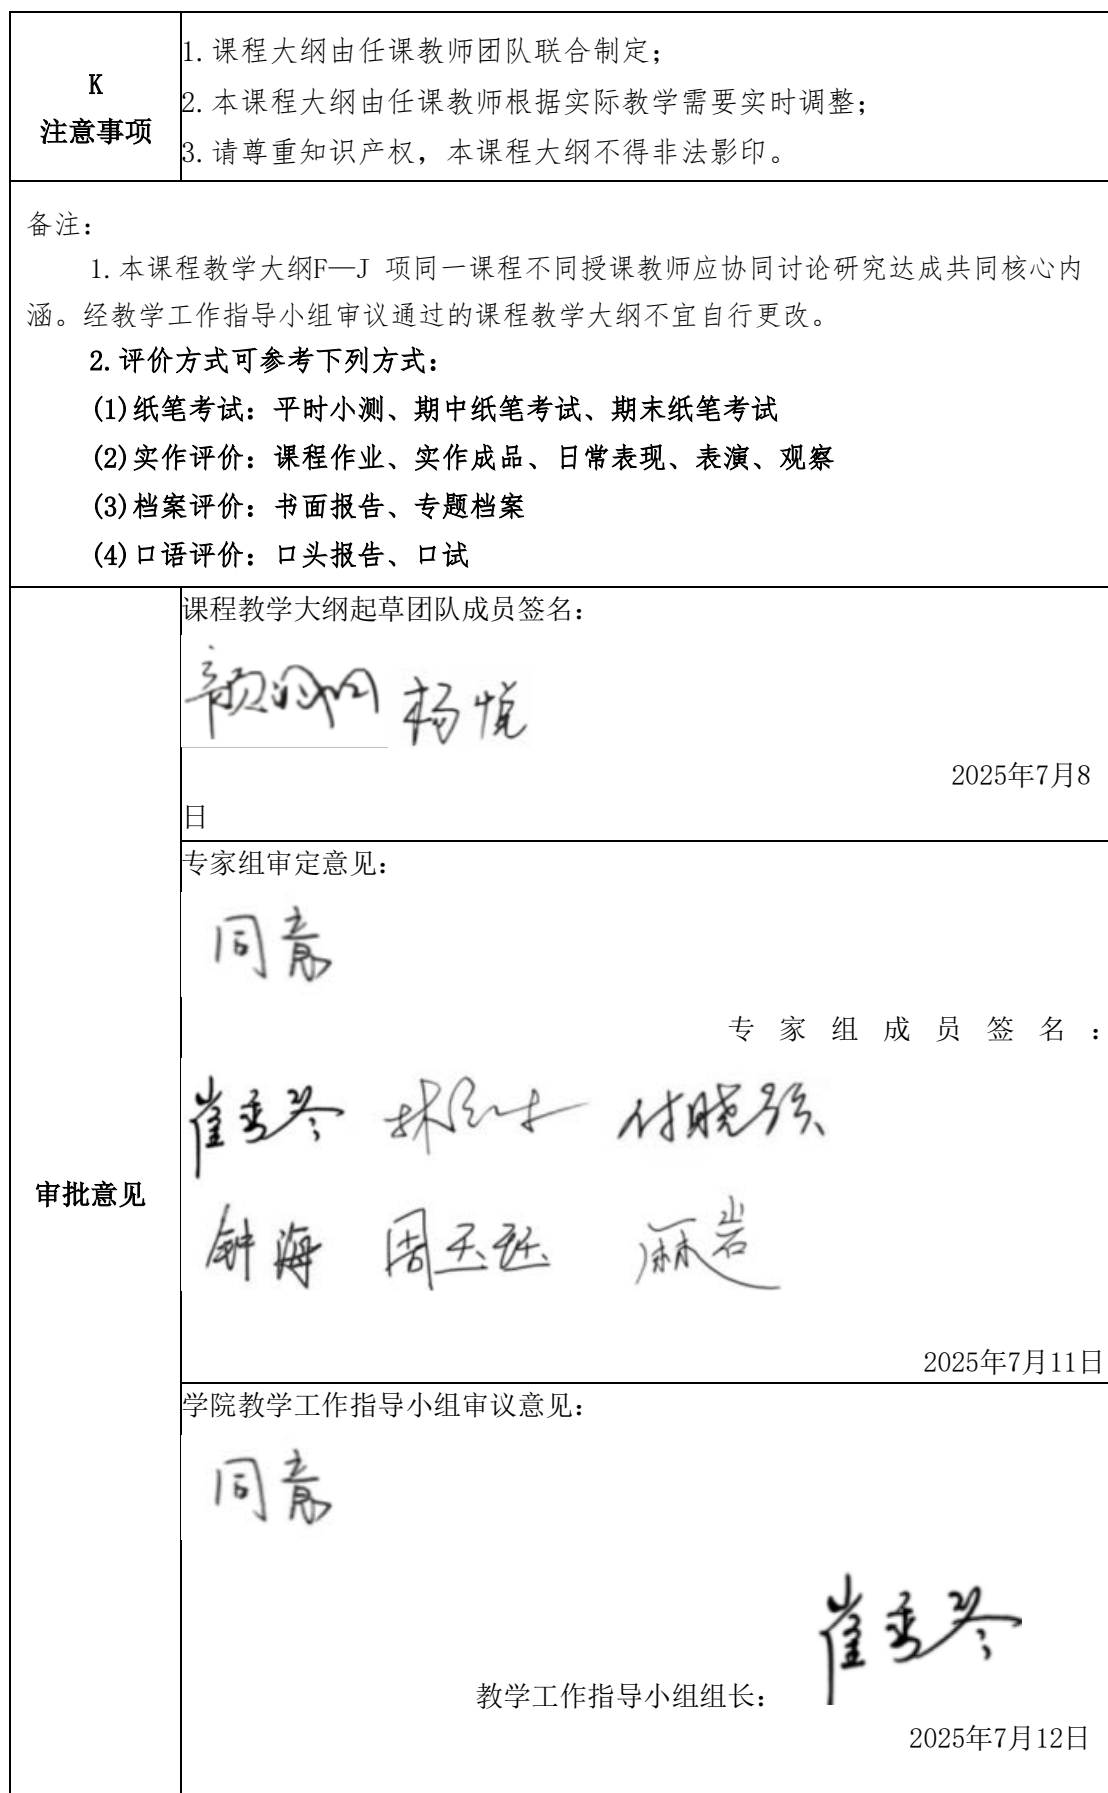 K
注意事项
1.课程大纲由任课教师团队联合制定；
2.本课程大纲由任课教师根据实际教学需要实时调整；
3.请尊重知识产权，本课程大纲不得非法影印。
备注：
1.本课程教学大纲F—J 项同一课程不同授课教师应协同讨论研究达成共同核心内
涵。经教学工作指导小组审议通过的课程教学大纲不宜自行更改。
2.评价方式可参考下列方式：
(1)纸笔考试：平时小测、期中纸笔考试、期末纸笔考试
(2)实作评价：课程作业、实作成品、日常表现、表演、观察
(3)档案评价：书面报告、专题档案
(4)口语评价：口头报告、口试
审批意见
课程教学大纲起草团队成员签名：
杨悦
2025年7月8
日
专家组审定意见：
同意
专家组成员签名：
崔秀琴 付晓强
钟海 周玉珏 麻岩
2025年7月11日
学院教学工作指导小组审议意见：
同意
教学工作指导小组组长：崔秀琴
2025年7月12日